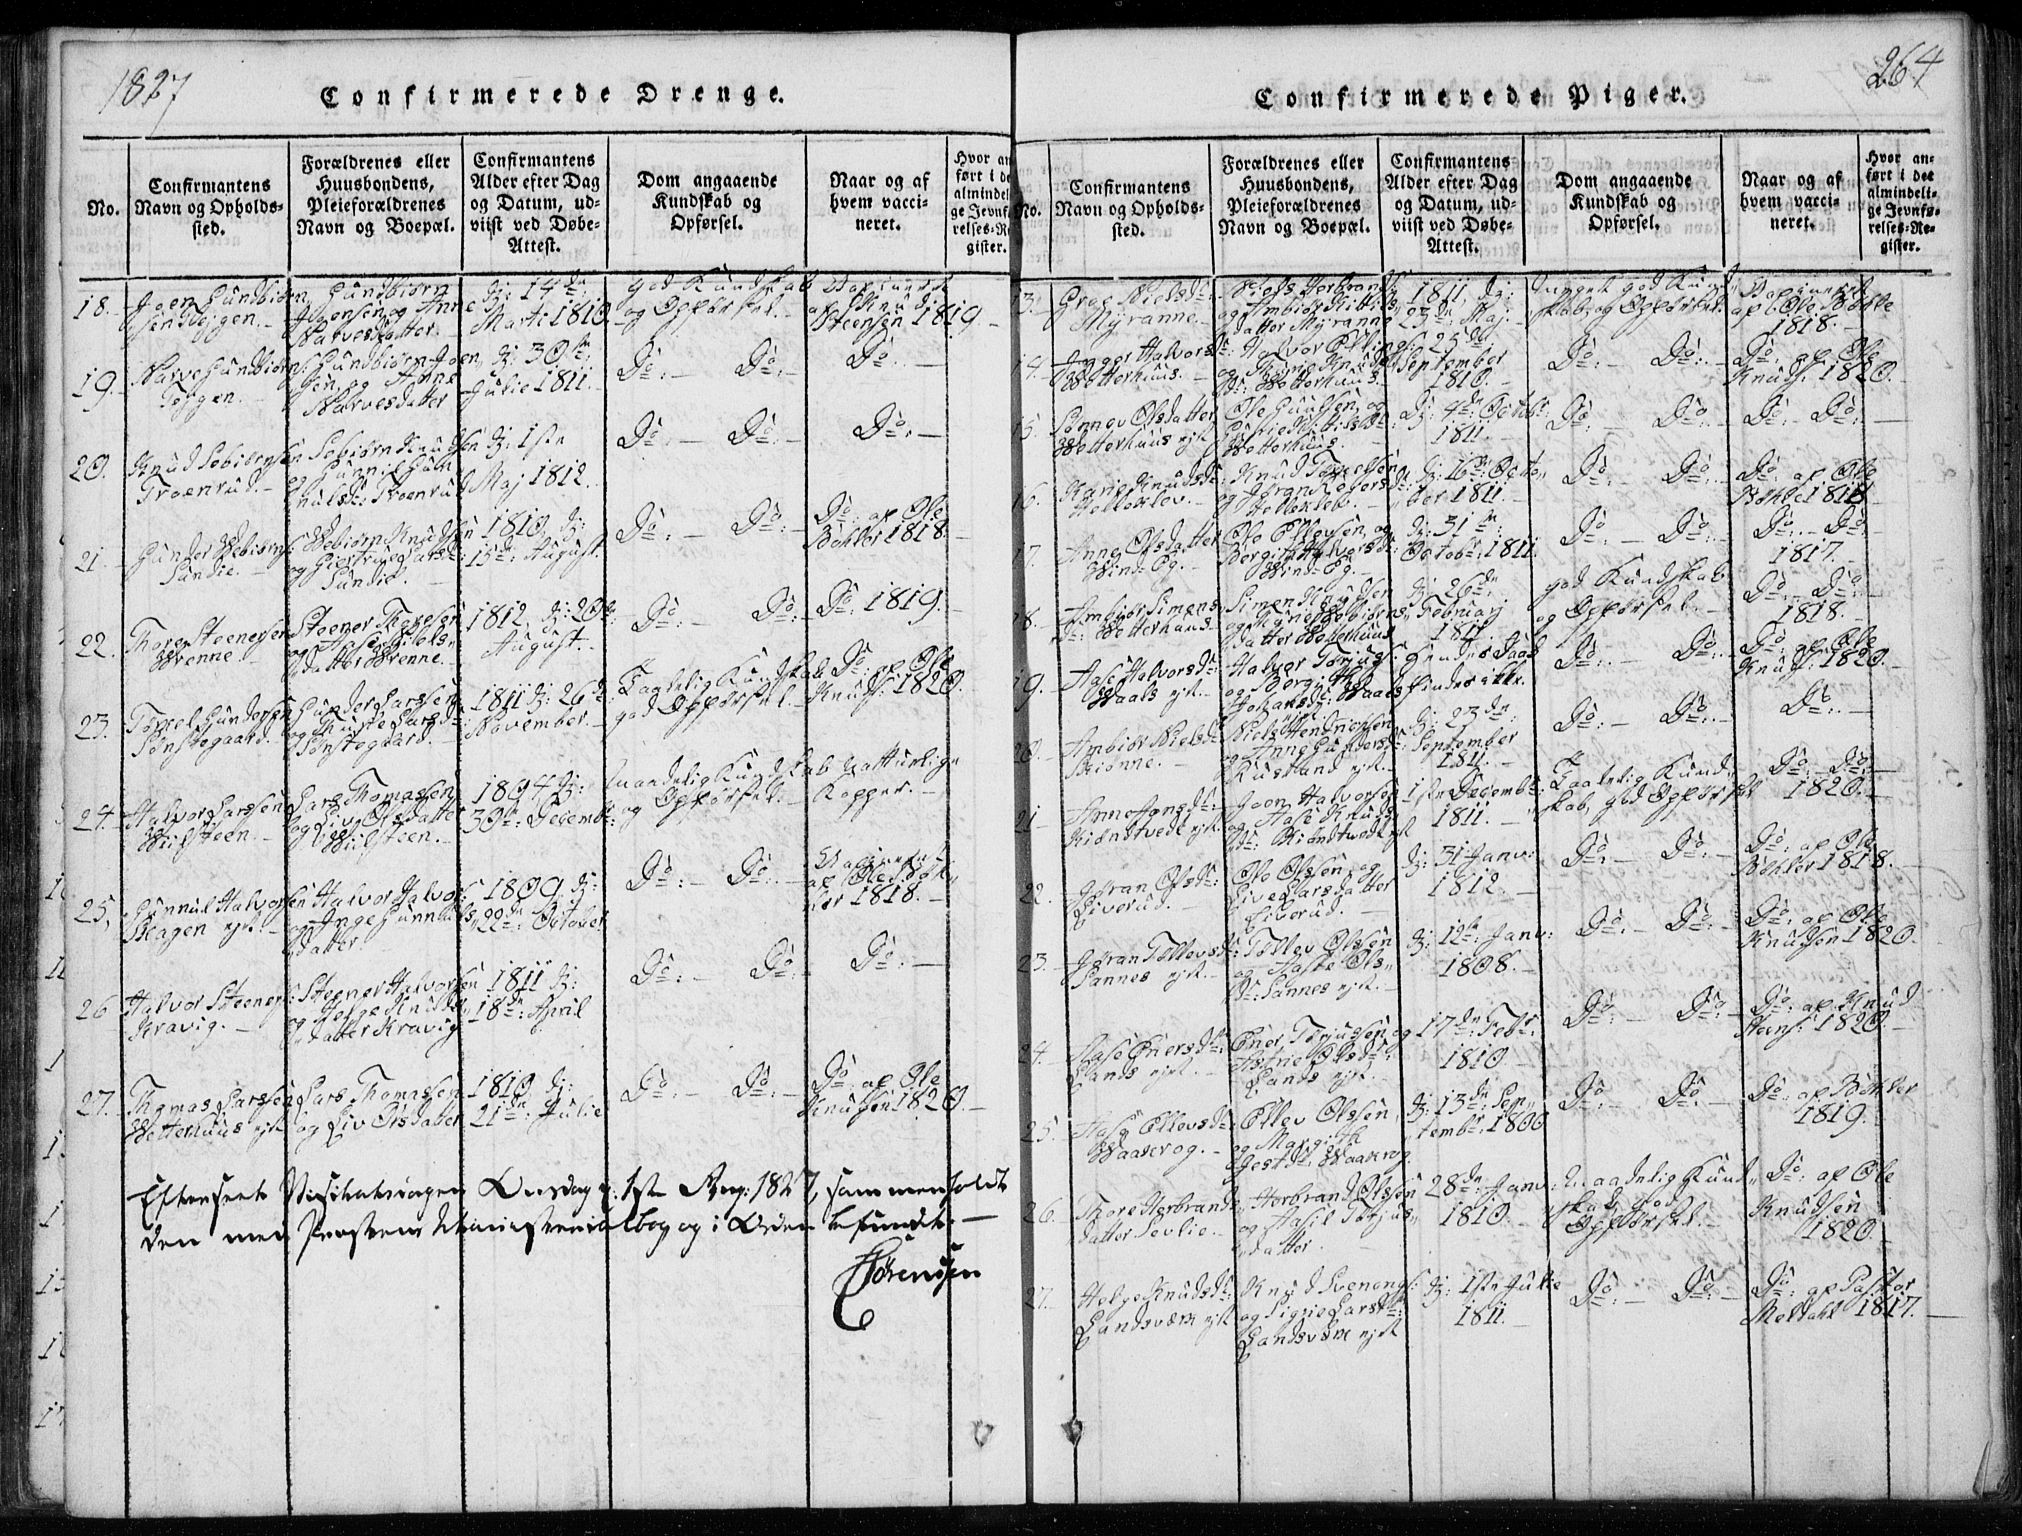 1827
Confirmerede Drenge.
No.
Confirmantens
Navn og Opholds-
sted.
Forældrenes eller
Huusbondens,
Pleieforældrenes
Navn og Boepæl.
Confirmantens
Alder efter Dag
og Datum, ud-
viist ved Døbe-
Attest.
Dom angaaende
Kundskab og
Opførsel.
Naar og af
hvem vacci-
neret.
Hvor an
ført i de
almindel
ge Jevnfø
relses-Re
gister.
18. Joen Gundbiørn
sen Kojgen.
Gundbiørn
Joensen og Anne
Narvesdatter
d: 14de
Marti 1810
god Kundskab
og Opførsel.
Vaccineret
af Knud
Steensen 1819
19. Narve Gundbiørns:
Tojgen.
Gundbiørn Joen
sen og Anne
Narvesdatter
d: 30te
Julie 1811.
Do: Do:
Do:
20. Knud Sebiørnsen
Troenrud.
Sebiørn Knudsen
og Gunnil Gun
nulsd: Troenrud
d: 1ste
Maj 1812.
Do: Do:
Do:
21. Gunder Webiørns:
Sundie.
Webiørn Knudsen
og Giertrue Larsd:
Sundie.
1810, d:
15de August.
Do: Do:
Do: af Ole
Bøhler 1818.
22. Thore Steenersen
Wrenne
Steener Thoresen
og Aase Nields
datter Wrenne
1812, d: 20de
August.
Do: Do:
Do: 1819.
23. Torsel Gundersen
Sønstegaard.
Gunder Larssen
og Kirste Larsd:
Sønstegaard.
1811 d: 26de
November
Taalelig Kundskab
god Opførsel
Do: af Ole
Knuds: 1820.
24. Halvor Larssen
Wiilsteen.
Lars Thomassen
og Liv Olsdatter
Wiilsteen.
1804 d:
30te Decemb:
maadelig Kundskab
og Opførsel
Naturlige
Kopper.
25. Gunnul Halvorsen
Skagen ejet
Halvor Halvors:
og Inge Gunnuls
datter
1809. d:
22de October
Do: Do:
Vaccineret
af Ole Bøh
ler 1818.
26 Halvor Steeners:
Kravig.
Steener Halvorsen
og Helge Knuds
datter Kravig
1811 d:
18de April
Do: Do:
Do:
27. Thomas Larssen
Wetterhuus ejet
Lars Thomassen
og Liv Olsdatter
1810 d:
21de Julie
Do: Do:
Do: af Ole
Knudsen 1820.
Efterseet Visitatsdagen Onsdag d: 1ste Aug: 1827, sammenholdt
den med Præstens Ministerialbog og i Orden befundet.
Sørensen
264
Confirmerede Piger.
No.
Confirmantens
Navn og Opholds-
sted.
Forældrenes eller
Huusbondens,
Pleieforældrenes
Navn og Boepæl.
Confirmantens
Alder efter Dag
og Datum, ud-
viist ved Døbe-
Attest.
Dom angaaende
Kundskab og
Opførsel.
Naar og af
hvem vacci-
neret.
Hvor an-
ført i det
almindeli-
ge Jevnfø-
relses-Re-
gister.
13. Groe Nielsd:
Myranne.
Niels Herbrands:
og Ambiør Kittils
datter Myranne
1811, d:
23de Maj.
meget god Kund
skab og Opførsel
Vaccineret
af Ole Bøhle
1818.
14. Inger Halvorsd:
Wetterhuus.
Halvor Ellings:
Knuds
d: Wetterhuus.
25de
September
1810.
Do: Do:
Do: af Ole
Knuds: 1820.
15. Sønnev Olsdatter
Wetterhuus ejet
Ole Guulsen og
Wetterhuus
d: 4de Octob:
1811.
Do: Do:
Do: Do:
16. Karie Knudsd:
Helleklev.
Knud Toversen
og Jøran Toversd:
Helleklev.
d: 16de Octo
ber 1811.
Do: Do:
Do: af Ole
Bøhle 1818
17. Anne Olsdatter
Wind-Eg.
Ole Ellevsen og
Bergit Halvorsd:
Wind-Eg.
d: 31te
Octob: 1811.
Do: Do:
Do: Do:
1817.
18. Ambiør Simens
d: Wetterhuus
Simen Knudsen
og Webiøns
datter Wetterhuus
d: 26de
Februarj
1811.
god Kundskab
og Opførsel.
Do: Do:
1818.
19. Aase Halvorsd:
Waals ejet.
Halvor Torjus:
og Bergit
Johansd: Waals
Hendes Daab
findes ikke.
Do: Do:
Do: af Ole
Knuds: 1820.
20. Ambiør Nielsd:
Skiønne.
Niels Hendricsen
og Anne Gundersd:
Ruslund ejet.
d: 23de
September
1811.
Do: Do:
Do:
21 Anne Joensd:
Kiøndtvedt ejet
Joen Halvorsen
og Aase Knuds
d: Kiøndtvedt ejet
1ste Decemb:
1811.
Taalelig Kund
skab, god Opførsel
Do: Do:
1820.
22. Jøran Olsd:
Liverud.
Ole Olsen og
Live Larsdatter
Liverud.
d: 31 Janv:
1812.
Do: Do:
Do: af Ole
Bøhler 1818.
23. Jøran Tollevsd:
Sannes ejet.
Tollev Olsen
og Aaste Ols
d: Sannes ejet.
d: 12te Janv:
1808.
Do: Do:
Do: af Ole
Knudsen 1820.
24. Aase Enersd:
Lands ejet.
Ener Torjussen og
Astrie Olsd:
Lands ejet.
17de Febr:
1810.
Do: Do:
Do: af Knud
Steens: 1820.
25. Aase Ellevsd:
Waakrog.
Ellev Olsen
og Margith
Waakrog
d: 13de Sep
temb: 1806
Do: Do:
Do: af Bøhler
1819.
26. Thore Herbrands
datter Sevlie.
Herbrand Olsen
og Aasil Torjus
datter.
28de Janv:
1810.
maadelig Kund
skab god
Opførsel.
Do: af Ole
Knudsen
1820.
27. Helge Knudsd:
Landsværn ejet
Knud Svenongs:
og Sigrie Larsd:
Landsværn ejet
d: 1ste Julie
1811.
Do: Do:
Do: af Pastor
Meldahl 1817.